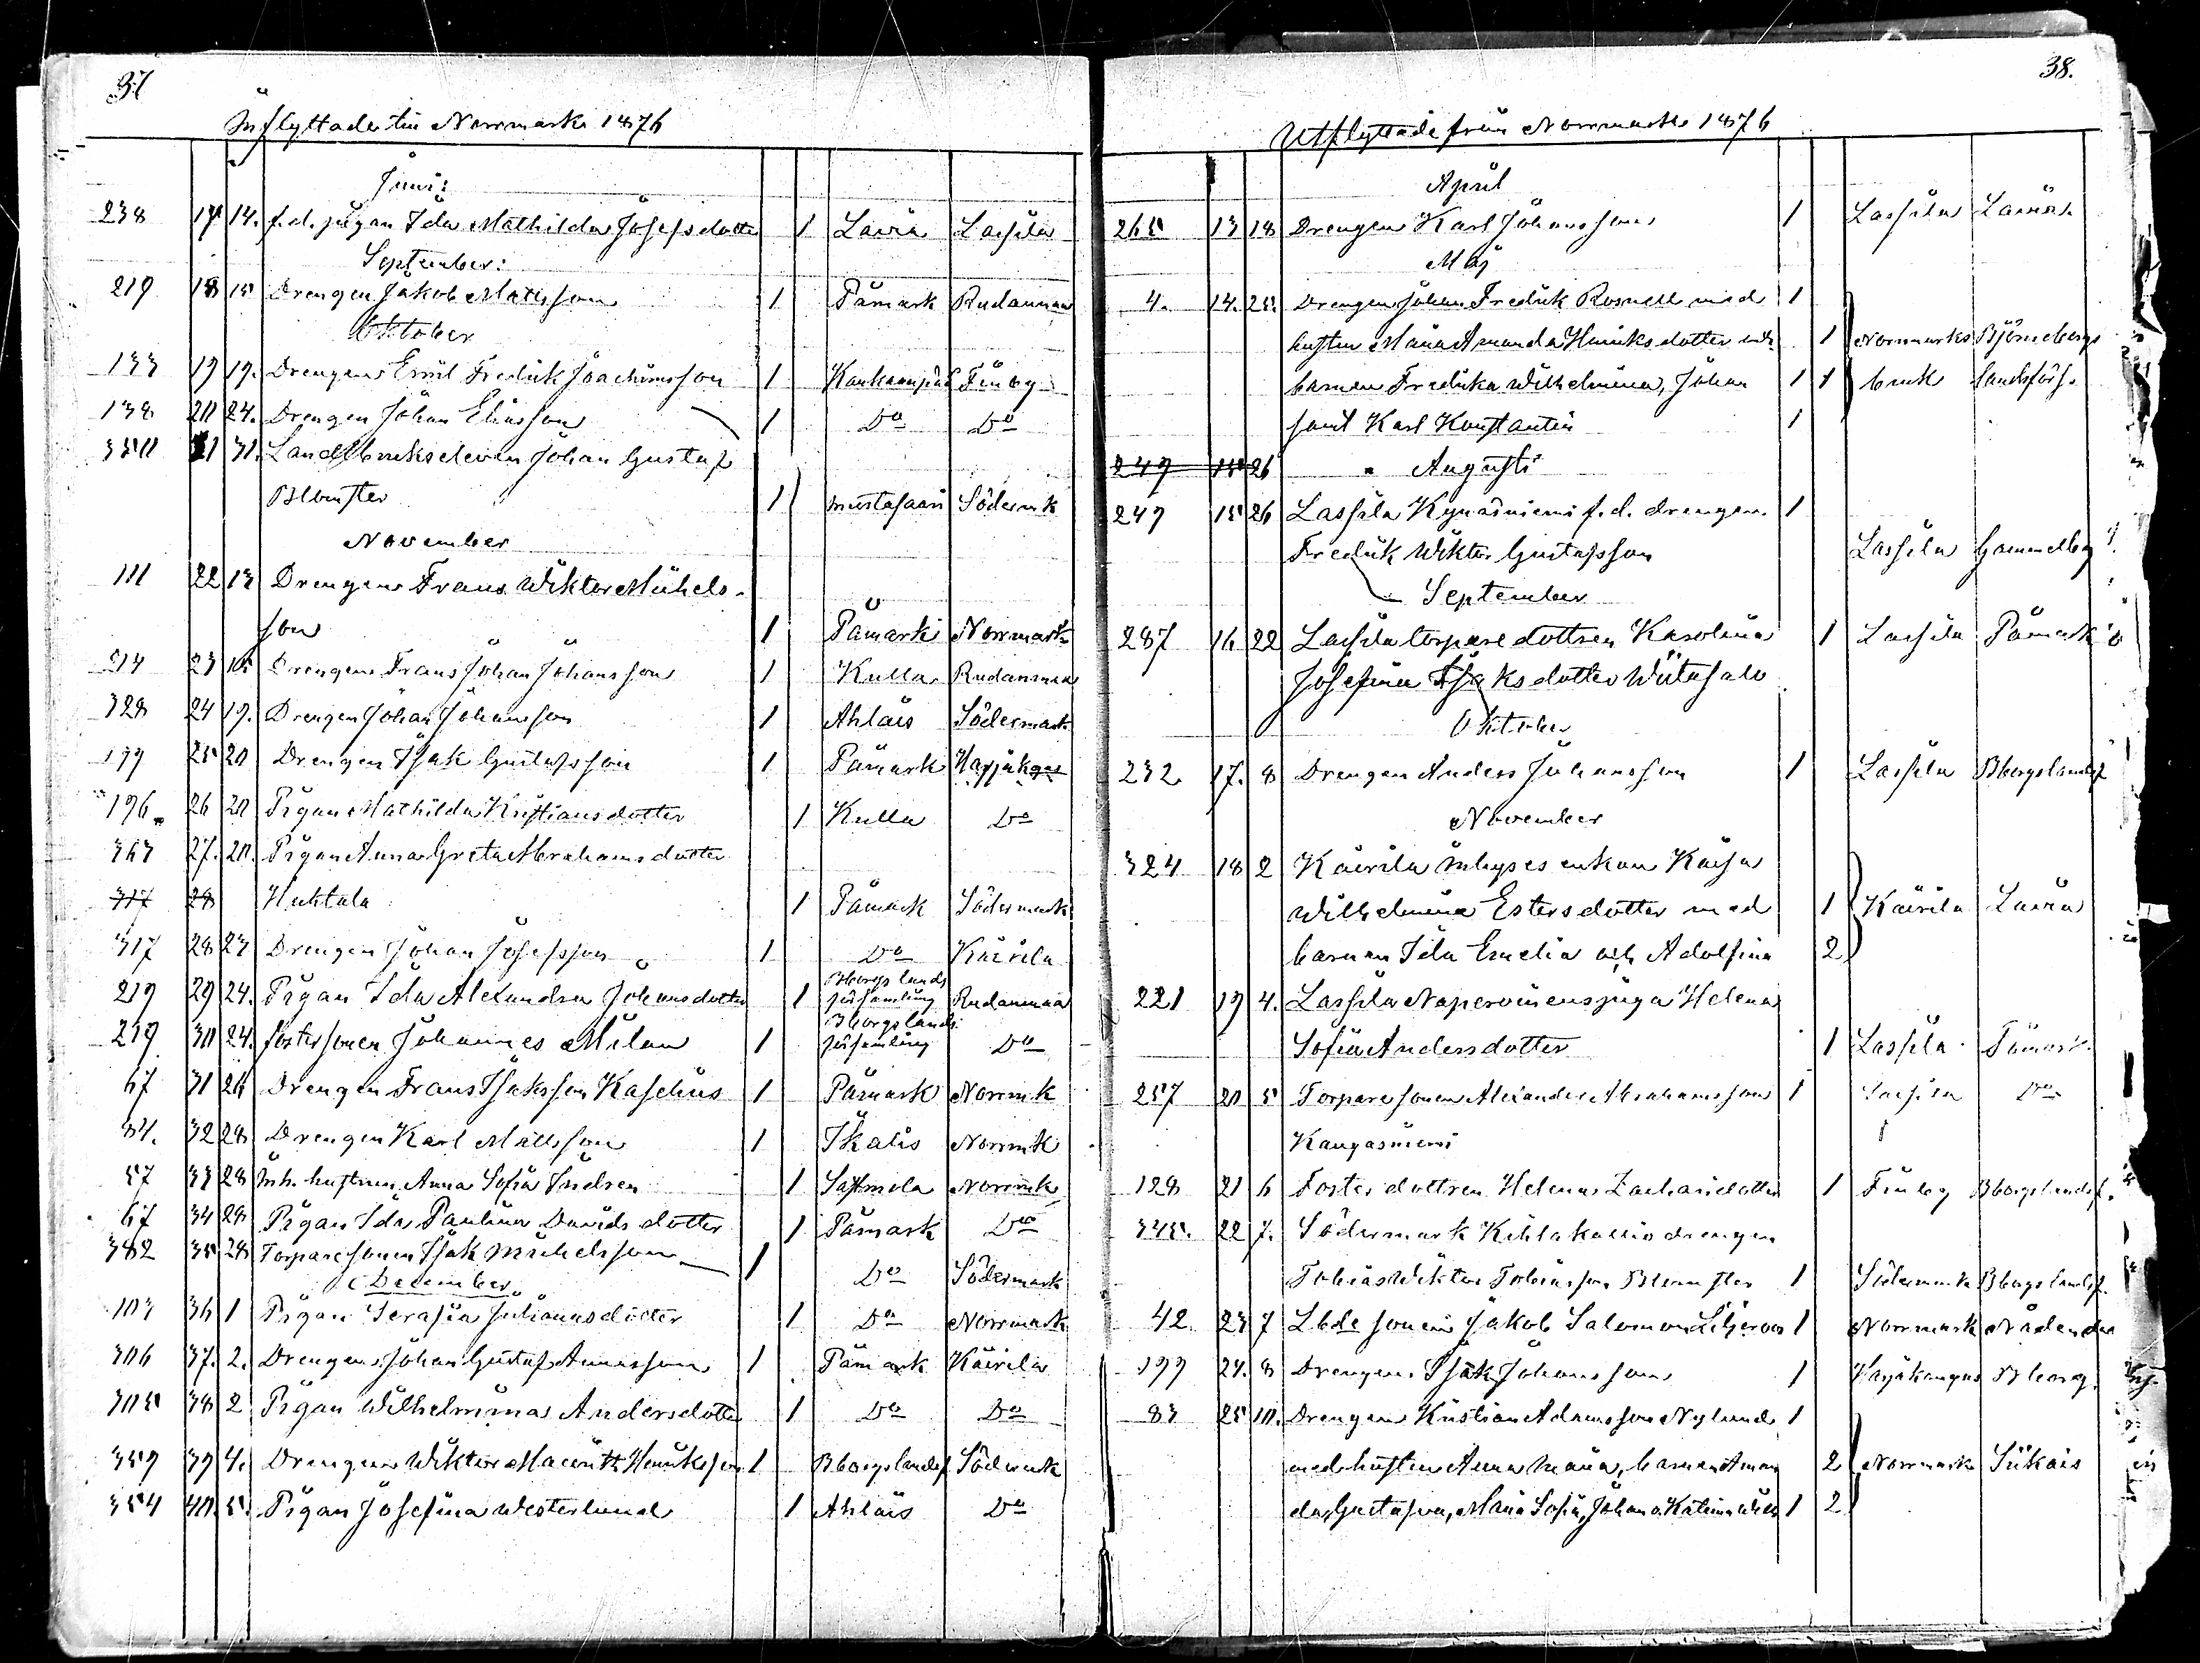 37
Inflyttade till Norrmark 1876
Juni:
238 17 14. f.d. pigan Ida Mathilda Josefsdotter 1 Lavia Lassila
September:
219 18 15 Drengen Jakob Matsson 1 Påmark Rudanmaa
Oktober
133 19 19. Drengen Emil Fredrik Joachimsson 1 Finby
138 20 24. Drengen Johan Eliasson 1 Do Do
350 21 31. Landtbrukseleven Johan Gustaf
Blomster 1 Mustasaari Södermk
November
111 22 13 Drengen Frans Wiktor Mihels-
son 1 Påmark Norrmark
214 23 15 Drengen Frans Johan Johansson 1 Kulla Rudanmaa
328 24 19. Drengen Johan Johansson 1 Ahlais Södermark
199 25 20 Drengen Isak Gustafsson 1 Påmark
196. 26 20 Pigan Mathilda Kristiansdotter 1 Kulla Do
363 27. 20. Pigan Anna Greta Abrahamsdotter
317 28 Huktala 1 Påmark Södermark
317 28 23 Drengen Johan Josefsson 1 Do Käirila
219 29 24. Pigan Ida Alexandra Johansdotter 1 Bborgs lands församling Rudanmaa
219 30 24. fostersonen Johannes Milan 1 Bborgs lands församling Do
67 31 26 Drengen Frans Isaksson Kaselius 1 Påmark Norrmk
84. 32 28 Drengen Karl Matsson 1 Ikalis Norrmk
57 33 28 Inh. hustrun Anna Sofia 1 Sastmola Norrmk
67 34 28 Pigan Ida Paulina Davidsdotter 1 Påmark Do
382 35 28 Torparesonen Isak Mihelsson 1 Do Södermark
December
103 36 1 Pigan Serafia Julianasdotter 1 Do Norrmark
306 37. 2. Drengen Johan Gustaf Annasson 1 Påmark Käirila
305 38 2 Pigan Wilhelmina Andersdotter 1 Do Do
359 39 4. Drengen Wiktor Mauritz Henriksson 1 Bborgs landsf Södermk
354 40. 5. Pigan Josefina Westerlund 1 Ahlais Do
38.
Utflyttade från Norrmark 1876
April
265 13 18 Drengen Karl Johansson 1 Lassila Lavia
Maj
4. 14. 25. Drengen Johan Fredrik Rosnell med 1
hustru Maria Amanda Henriksdotter och 1 Norrmarks Björneborgs
barnen Fredrika Wilhelmina, Johan 1 1 bruk landsförs.
samt Karl Konstantin 1
249 15 26 Augusti
249 15 26 Lassila Kynäsniemi f.d. drengen 1
Fredrik Wiktor Gustafsson Lassila Gammelby
September
287 16 22 Lassila torparedottren Karolina 1 Lassila Påmark
Josefina Isaksdotter Wiitasalo
Oktober
232 17. 8 Drengen Anders Johansson 1 Lassila Bborgs landsf
November
324 18 2 Käirila inhyses enkan Kaisa
Wilhelmina Estersdotter med 1 Käirila Lavia
barnen Ida Emelia och Adolfina 2
221 19 4. Lassila pigan Helena
Sofia Andersdotter 1 Lassila Påmark
257 20 5 Torparesonen Alexander Abrahamsson 1 Lassila Do
Kangasniemi
128 21 6 Fosterdottren Helena Zachariedotter 1 Finby Bborgs landsf.
345. 22 7. Södermark drengen
Tobias Wiktor Tobiasson Blomster 1 Södermark Bborgs landsf.
42. 23 7 Lbde sonen Jakob Salomon 1 Norrmark Nådendal
199 24. 8 Drengen Isak Johansson 1 Harjakangas Bborg.
83 25 10. Drengen Kristian Adamsson Nylund 1
med hustru Anna Maria, barnen Aman 2 Norrmark Siikais
da, Gustafva, Maria Sofia, Johan o. Katrina 1 2